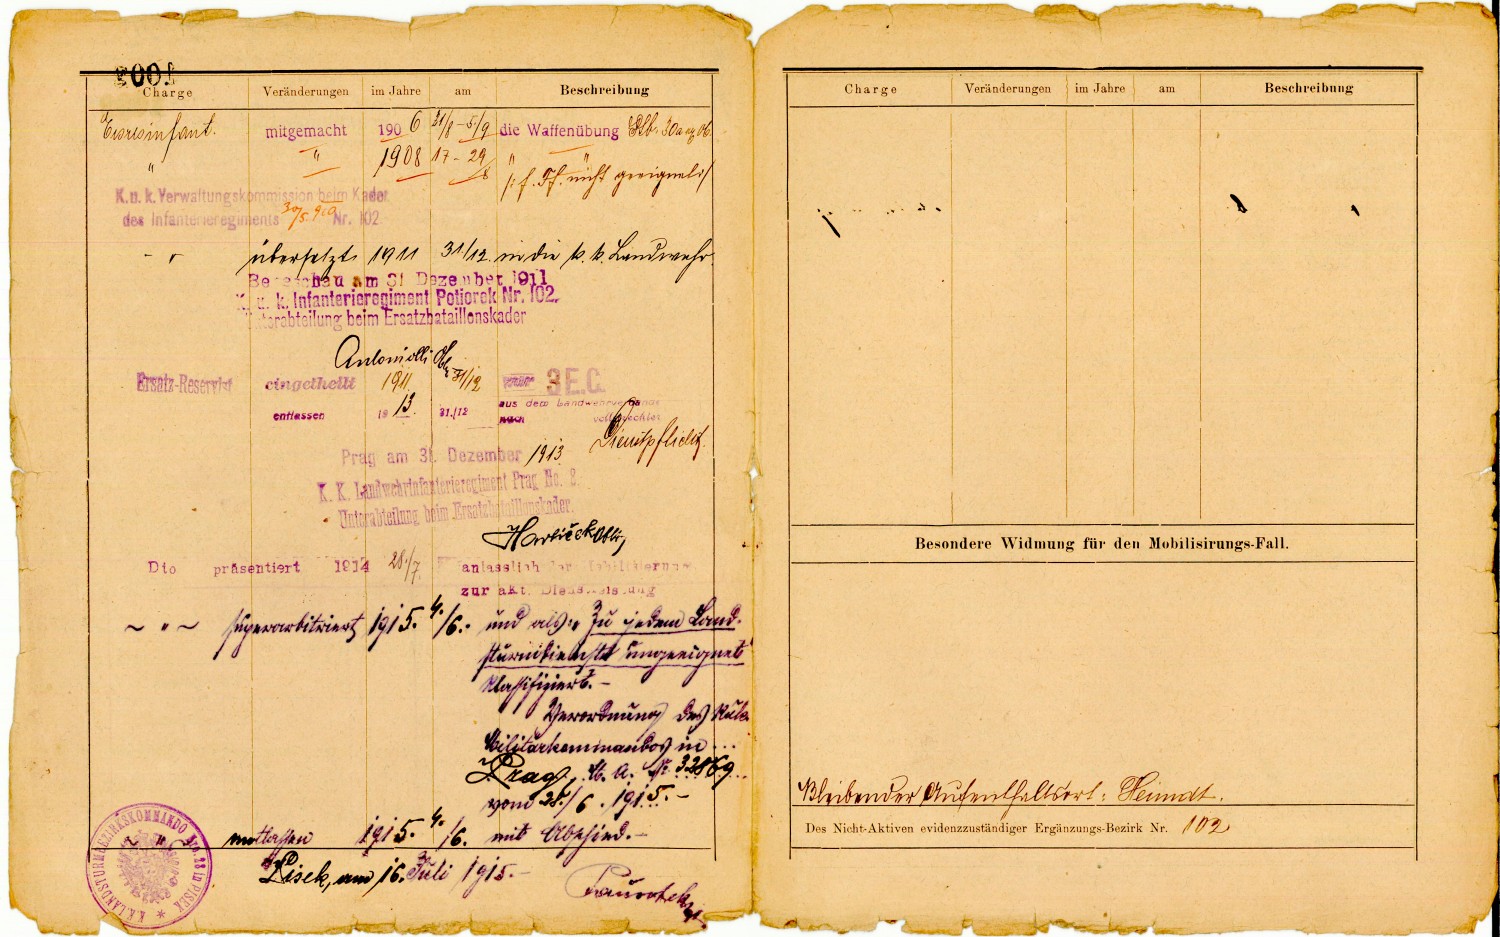 1001
Charge Veränderungen im Jahre am Beschreibung
Ersresinfant. mitgemacht 1906 31/8 – 5/9 die Waffenübung
" " 1908 17 – 29/8 " "
/: f. Ff. nicht geeignet :/
K. u. k. Verwaltungskommission beim Kader
des Infanterieregiments Nr. 102
30/5 910
- " übersetzt 1911 31/12. in die k. k. Landwehr.
am 31 Dezember 1911
K. u. k. Infanterieregiment Potiorek Nr. 102.
Unterabteilung beim Ersatzbataillonskader
Ersatz-Reservist eingetheilt 1911 31/12 3 E.C.
entlassen 1913. 31./12 aus dem Landwehrverbande
nach vollstreckter
Dienstpflicht.
Prag am 31. Dezember 1913
K. K. Landwehrinfanterieregiment Prag No. 8.
Unterabteilung beim Ersatzbataillonskader.
Dto präsentiert 1914 28./7. anlasslich der Mobilisierung
zur akt. Dienstleistung
~ " ~ superarbitriert 1915. 4./6. und als: Zu jedem Land-
sturmdienste ungeeignet
klassifiziert. –
Verordnung des k.u.k.
Militärkommandos in ...
Prag, M. A. Nr. 32869
vom 28./6. 1915. –
~ " ~ entlassen 1915. 4./6. mit Abschied. –
Pisek, am 16. Juli 1915. –
K. K. LANDSTURMBEZIRKSKOMMANDO Nro. 28 in PISEK
Charge Veränderungen im Jahre am Beschreibung
Besondere Widmung für den Mobilisirungs-Fall.
Bleibender Aufenthaltsort: Heimat.
Des Nicht-Aktiven evidenzzuständiger Ergänzungs-Bezirk Nr. 102